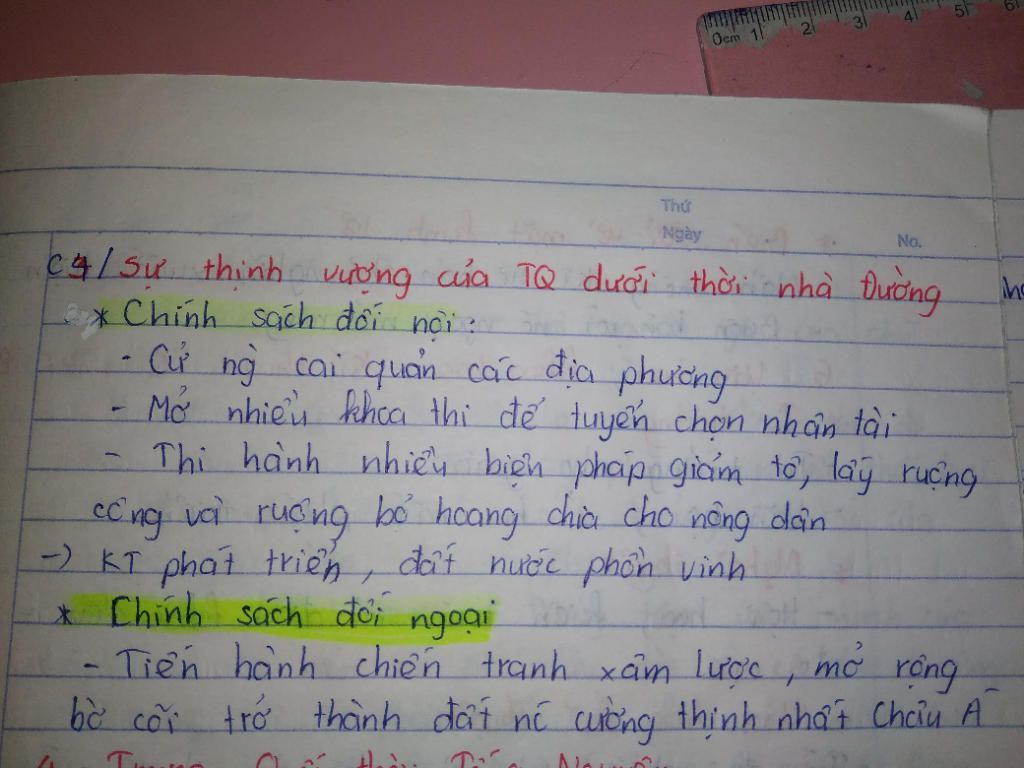 0cm 1 2 3 4 5 6
Thứ
Ngày
No.
/ Sự thịnh vượng của TQ dưới thời nhà Đường
* Chính sách đối nội:
- Cử ng̀ cai quản các địa phương
- Mở nhiều khoa thi để tuyển chọn nhân tài
- Thi hành nhiều biện pháp giảm tô, lấy ruộng
công và ruộng bỏ hoang chia cho nông dân
-> KT phát triển, đất nước phồn vinh
* Chính sách đối ngoại
- Tiến hành chiến tranh xâm lược, mở rộng
bờ cõi trở thành đất nc cường thịnh nhất Châu Á